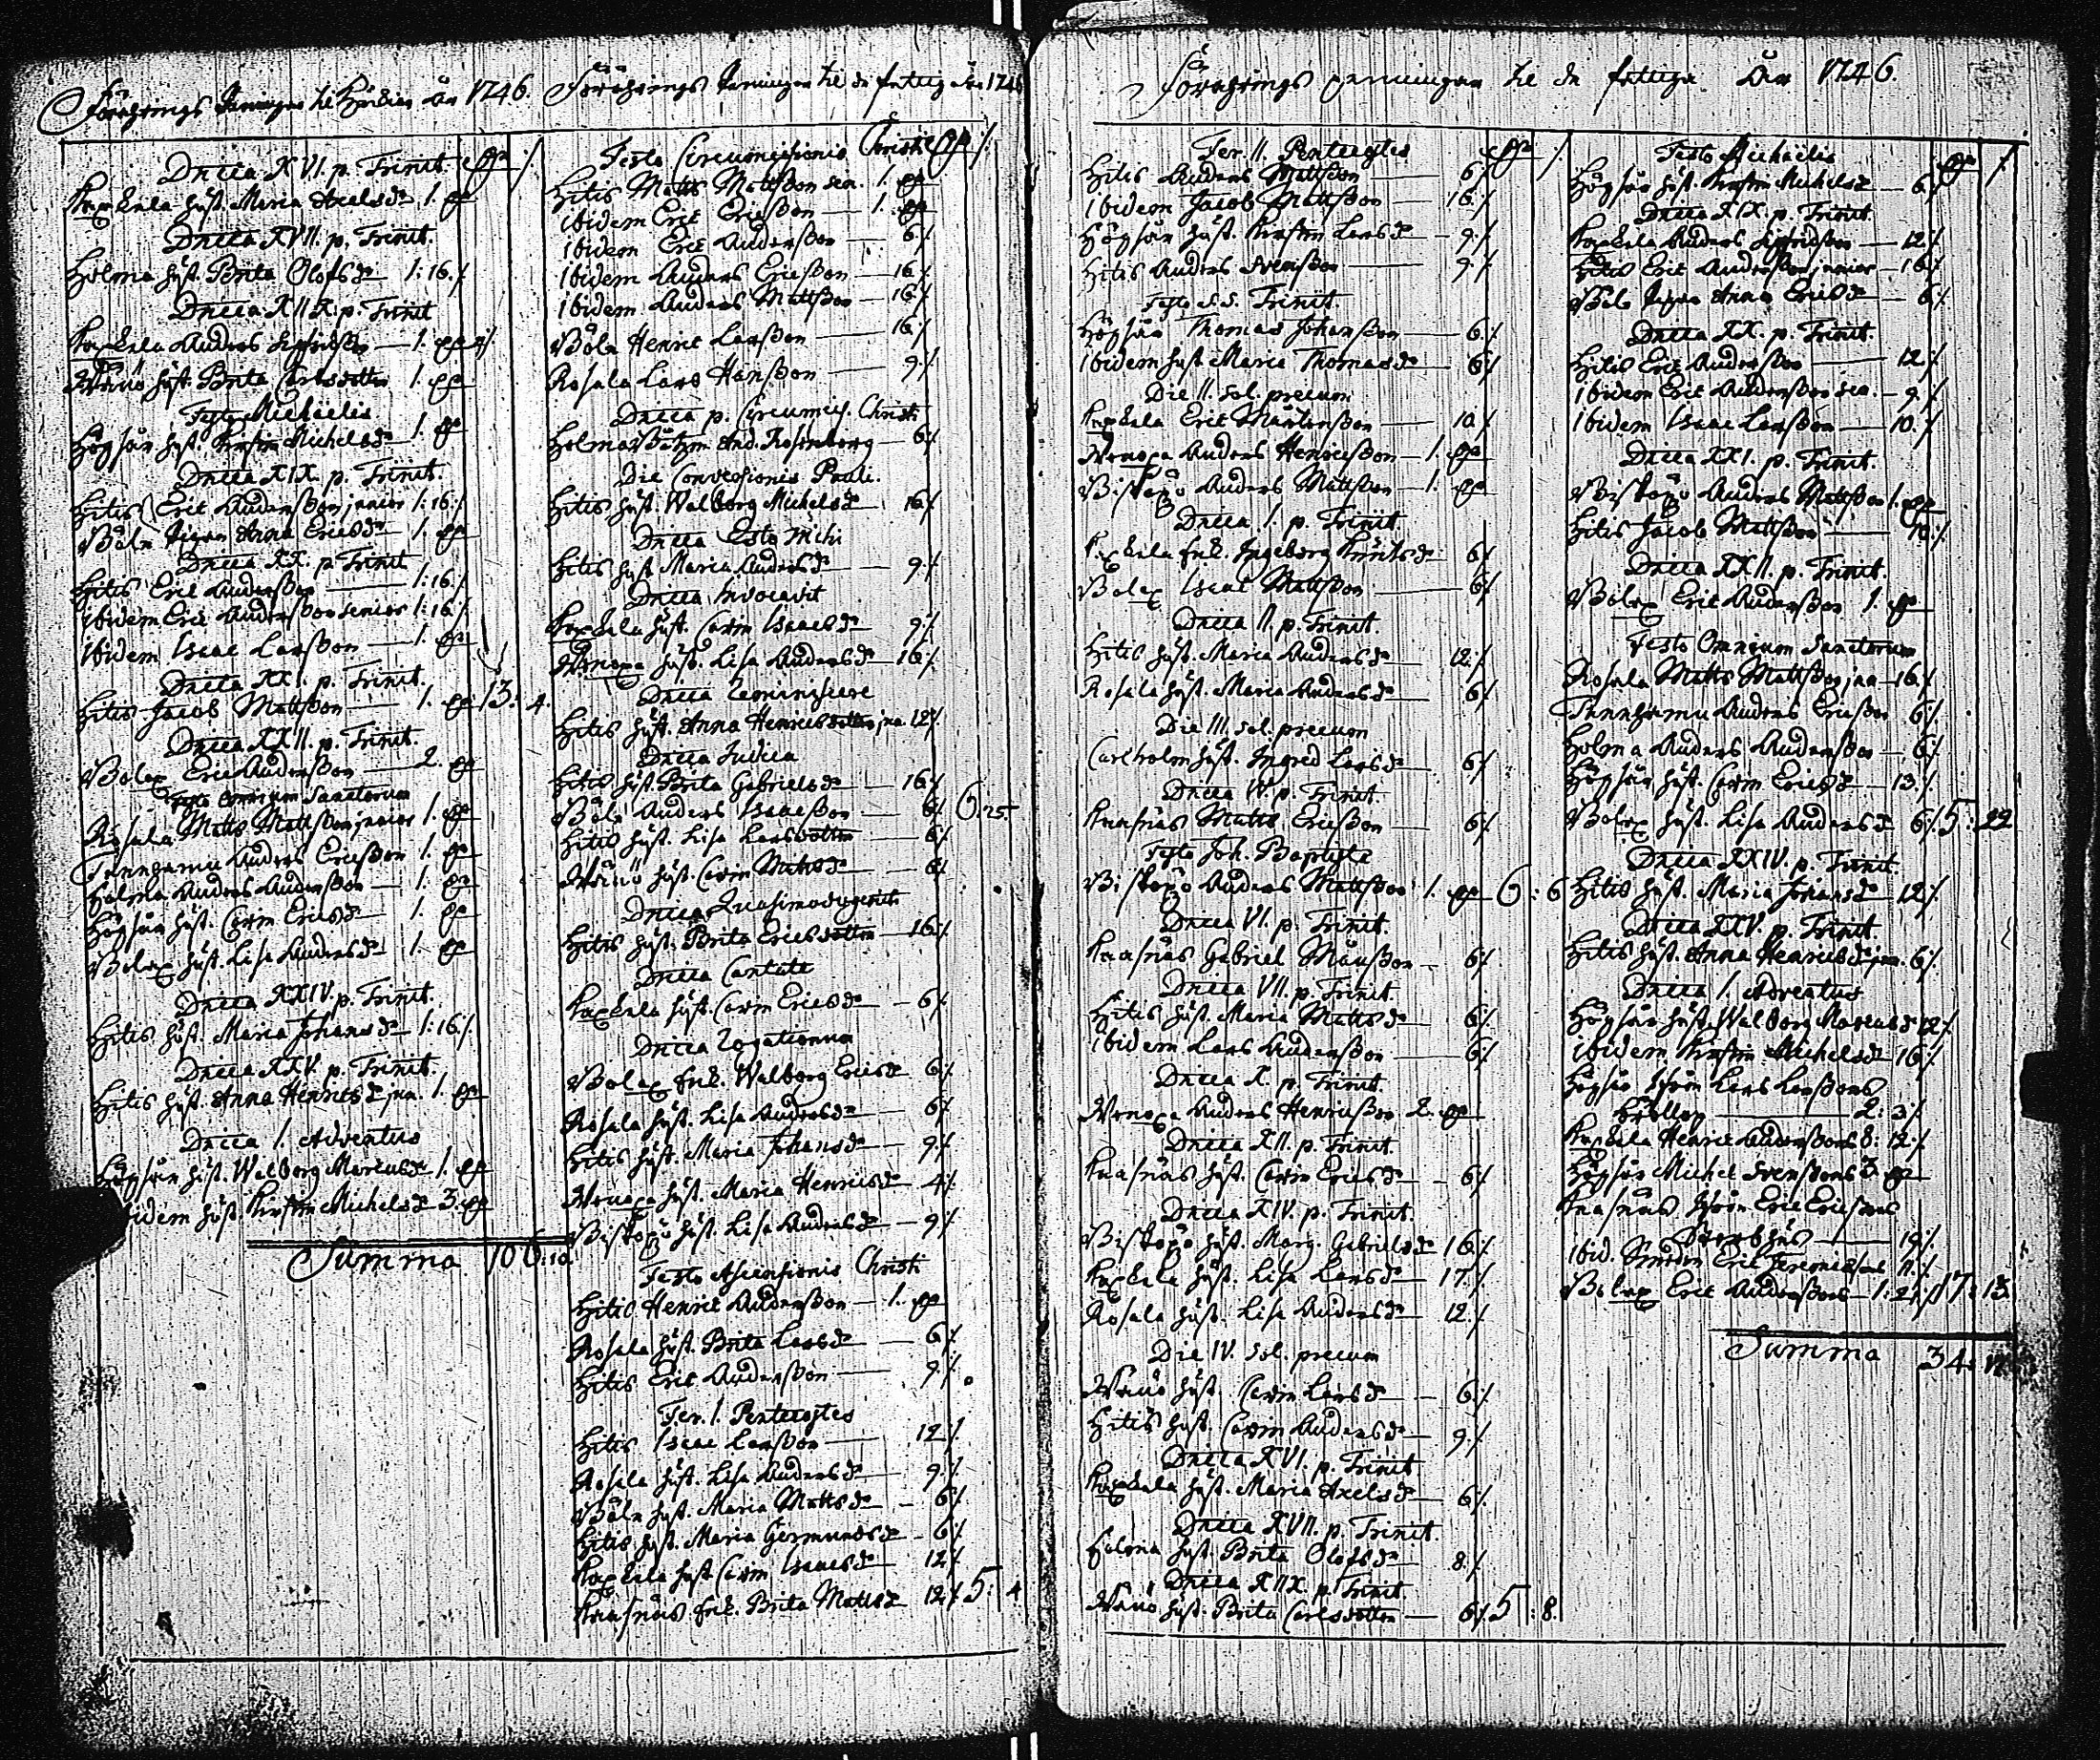 Förährings Penningar til Kyrkian År 1746.
Dnica XVI. p. Trinit.
Kaxkela hust. Maria Axelsdr 1.
Dnica XVII. p. Trinit.
Holma hust. Brita Olofsdr 1: 16.
Dnica XIIX. p. Trinit
Kaxkela Anders Sigfridsson — 1.
Wänö hust. Brita Carlsdotter 1.
Festo Michaëlis
Högsår hust. Kirstin Michelsdr 1.
Dnica XIX. p. Trinit.
Hitis Eric Andersson junior 1: 16.
Böle Pigan Anna Ericsdr 1.
Dnica XX. p. Trinit
Hitis Eric Andersson — 1: 16.
ibidem Eric Andersson senior 1: 16.
ibidem Isaac Larsson — 1.
Dnica XXI. p. Trinit.
Hitis Jacob Mattsson — 1. 13: 4.
Dnica XXII. p. Trinit.
Bolax Eric Andersson — 2.
Festo Omnium Sanctorum
Rosala Matts Mattsson junior 1.
Tunnhamn Anders Ericsson 1.
Holma Anders Andersson — 1.
Högsår hust. Carin Ericsdr 1.
Bolax hust. Lisa Andersdr 1.
Dnica XXIV. p. Trinit.
Hitis hust. Maria Johansdr 1: 16.
Dnica XXV. p. Trinit.
Hitis hust. Anna Henricsdr jun. 1.
Dnica 1. Adventus
Högsår hust. Walborg Marcusdr 1.
ibidem hust. Kirstin Michelsdr 3.
Summa 106: 10.
Förährings Penningar til de fattiga År 1746
Festo Circumcisionis Christi
Hitis Matts Mattsson sen. 1.
ibidem Eric Ericsson — 1.
ibidem Eric Andersson — 6
ibidem Anders Ericsson — 16
ibidem Anders Mattsson — 16
Böle Henric Larsson — 16
Rosala Lars Hansson — 9
Dnica p. Circumcis. Christi
Holma Båtzm. And. Rosenberg — 6
Die Conversionis Pauli.
Hitis hust. Walborg Michelsdr 16
Dnica Esto Mihi
Hitis hust. Maria Andersdr — 9
Dnica Invocavit
Kaxkela hust. Carin Isaacsdr 9
Wänoxa hust. Lisa Andersdr — 16
Dnica Reminiscere
Hitis hust. Anna Henricsdotter jun. 12
Dnica Judica
Hitis hust. Brita Gabrielsdr — 16
Böle Anders Isaacsson — 6 6: 25.
Hitis hust. Lisa Larsdotter — 6
Wänö hust. Carin Mattsdr — 6
Dnica Quasimodogeniti
Hitis hust. Brita Ericsdotter — 16
Dnica Cantate
Kaxkela hust. Carin Ericsdr — 6
Dnica Rogationum
Bolax Enk. Walborg Ericsdr 6
Rosala hust. Lisa Andersdr — 6
Hitis hust. Maria Johansdr — 9
Wänoxa hust. Maria Henricsdr — 4
Biskopsö hust. Lisa Andersdr — 9
Festo Ascensionis Christi
Hitis Henric Andersson — 1.
Rosala hust. Brita Larsdr — 6
Hitis Eric Andersson — 9
Fer. 1. Pentecostes
Hitis Isaac Larsson — 12
Rosala hust. Lisa Andersdr — 9
Böle hust. Maria Mattsdr — 6
Hitis hust. Maria Germundsdr — 6
Kaxkela hust. Carin Isaacsdr 12
Kasnäs Enk. Brita Mattsdr 12 5: 4
Förährings penningar til de fattiga År 1746.
Fer. II. Pentecostes
Hitis Anders Mattsson — 6
ibidem Jacob Mattsson — 16
Högsår hust. Kirstin Larsdr — 9
Hitis Anders Svensson — 9
Festo S.S. Trinit.
Högsår Thomas Johansson — 6
ibidem hust. Maria Thomasdr — 6
Die II. sol. precum
Kaxkela Eric Mårtensson — 10
Wänoxa Anders Henricsson — 1.
Biskopsö Anders Mattsson — 1.
Dnica 1. p. Trinit
Kaxkela Enk. Ingeborg 6
Bolax Isaac Mattsson — 6
Dnica II. p. Trinit.
Hitis hust. Maria Andersdr — 12
Rosala hust. Maria Andersdr — 6
Die III. sol. precum
Carlholm hust. Ingred Larsdr — 6
Dnica IV. p. Trinit.
Kasnäs Matts Ericsson — 6
Festo Joh. Baptistæ
Biskopsö Anders Mattsson 1. 6: 6
Dnica VI. p. Trinit.
Kasnäs Gabriel Månsson — 6
Dnica VII. p. Trinit.
Hitis hust. Maria Mattsdr — 6
ibidem Lars Andersson — 6
Dnica X. p. Trinit.
Wänoxa Anders Henricsson 2.
Dnica XII. p. Trinit.
Kasnäs hust. Carin Ericsdr — 6
Dnica XIV. p. Trinit.
Biskopsö hust. Marg. Gabrielsdr 16
Kaxkela hust. Lisa Larsdr — 17
Rosala hust. Lisa Andersdr — 12
Die IV. sol. precum
Wänö hust. Carin Larsdr — 6
Hitis hust. Carin Andersdr — 9
Dnica XVI. p. Trinit
Kaxkela hust. Maria Axelsdr — 6
Dnica XVII. p. Trinit.
Holma hust. Brita Olofsdr 8
Dnica XIIX. p. Trinit.
Wänö hust. Brita Carlsdotter — 6 5: 8.
Festo Michaëlis
Högsår hust. Kirstin Michelsdr — 6
Dnica XIX. p. Trinit.
Kaxkela Anders Sigfridsson — 12
Hitis Eric Andersson junior — 16
Böle Pigan Anna Ericsdr — 6
Dnica XX. p. Trinit.
Hitis Eric Andersson — 12
ibidem Eric Andersson sen. — 9
ibidem Isaac Larsson — 10.
Dnica XXI. p. Trinit.
Biskopsö Anders Mattsson 1.
Hitis Jacob Mattsson — 10
Dnica XXII. p. Trinit.
Bolax Eric Andersson 1.
Festo Omnium Sanctorum
Rosala Matts Mattsson jun — 16
Tunnhamn Anders Ericsson 6
Holma Anders Andersson — 6
Högsår hust. Carin Ericsdr — 13
Bolax hust. Lisa Andersdr 6 5: 22
Dnica XXIV. p. Trinit.
Hitis hust. Maria Johansdr 12
Dnica XXV. p. Trinit
Hitis hust. Anna Henricsdr jun. 6
Dnica 1. Adventus
Högsår hust. Walborg Marcusdr 12
ibidem Kirstin Michelsdr 16
Högsår Lars Larssons
Bröllop — 2: 3
Kaxkela Henric Anderssons 8: 12
Högsår Michel Svenssons 3.
Kasnäs Eric Ericssons
— 19
ibid. Eric Jeremiæsons 11
Bolax Eric Anderssons — 1: 21 17: 13.
Summa 34: